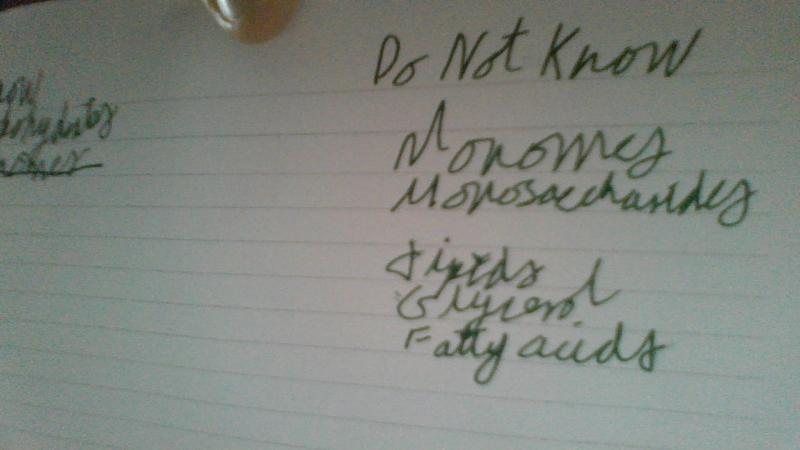 Do Not Know
Monomes
Monosaccharides
Lipids
Glycerol
Fatty acids